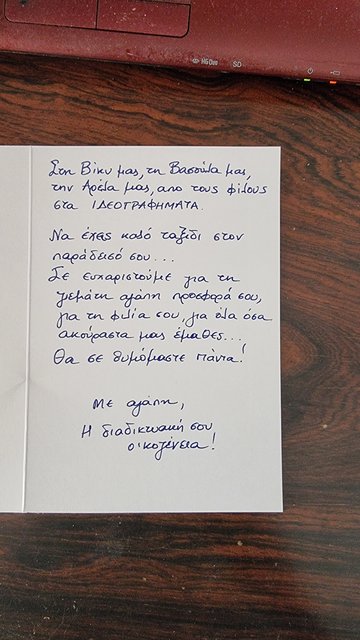 HG Duo
SD
Στη Βίκυ μας, τη Βασούλα μας,
την Αρέλα μας, απο τους φίλους
στα ΙΔΕΟΓΡΑΦΗΜΑΤΑ.
Να έχεις καλό ταξίδι στον
παράδεισό σου...
Σε ευχαριστούμε για τη
γεμάτη αγάπη προσφορά σου,
για τη φιλία σου, για όλα όσα
ακούραστα μας έμαθες...
Θα σε θυμόμαστε πάντα!
Με αγάπη,
Η διαδικτυακή σου
οικογένεια!